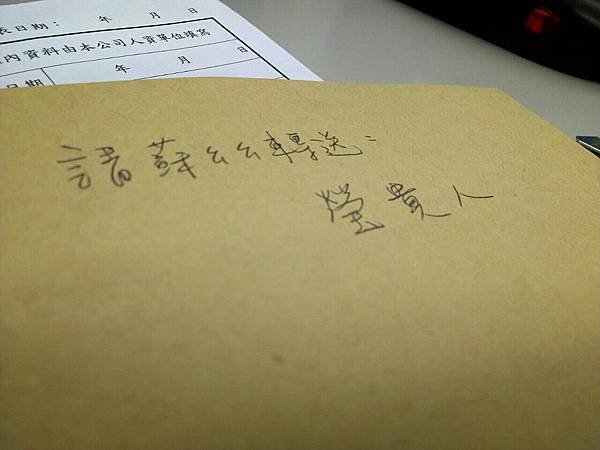 表日期： 年 月 日
內資料由本公司人資單位填寫
日期 年 月 日
請蘇么么轉送：
瑩貴人